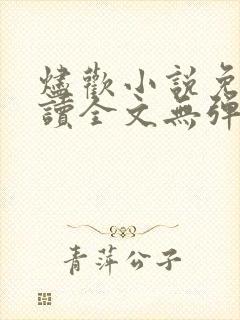 燼歡小說免
讀全文無彈
青萍公子